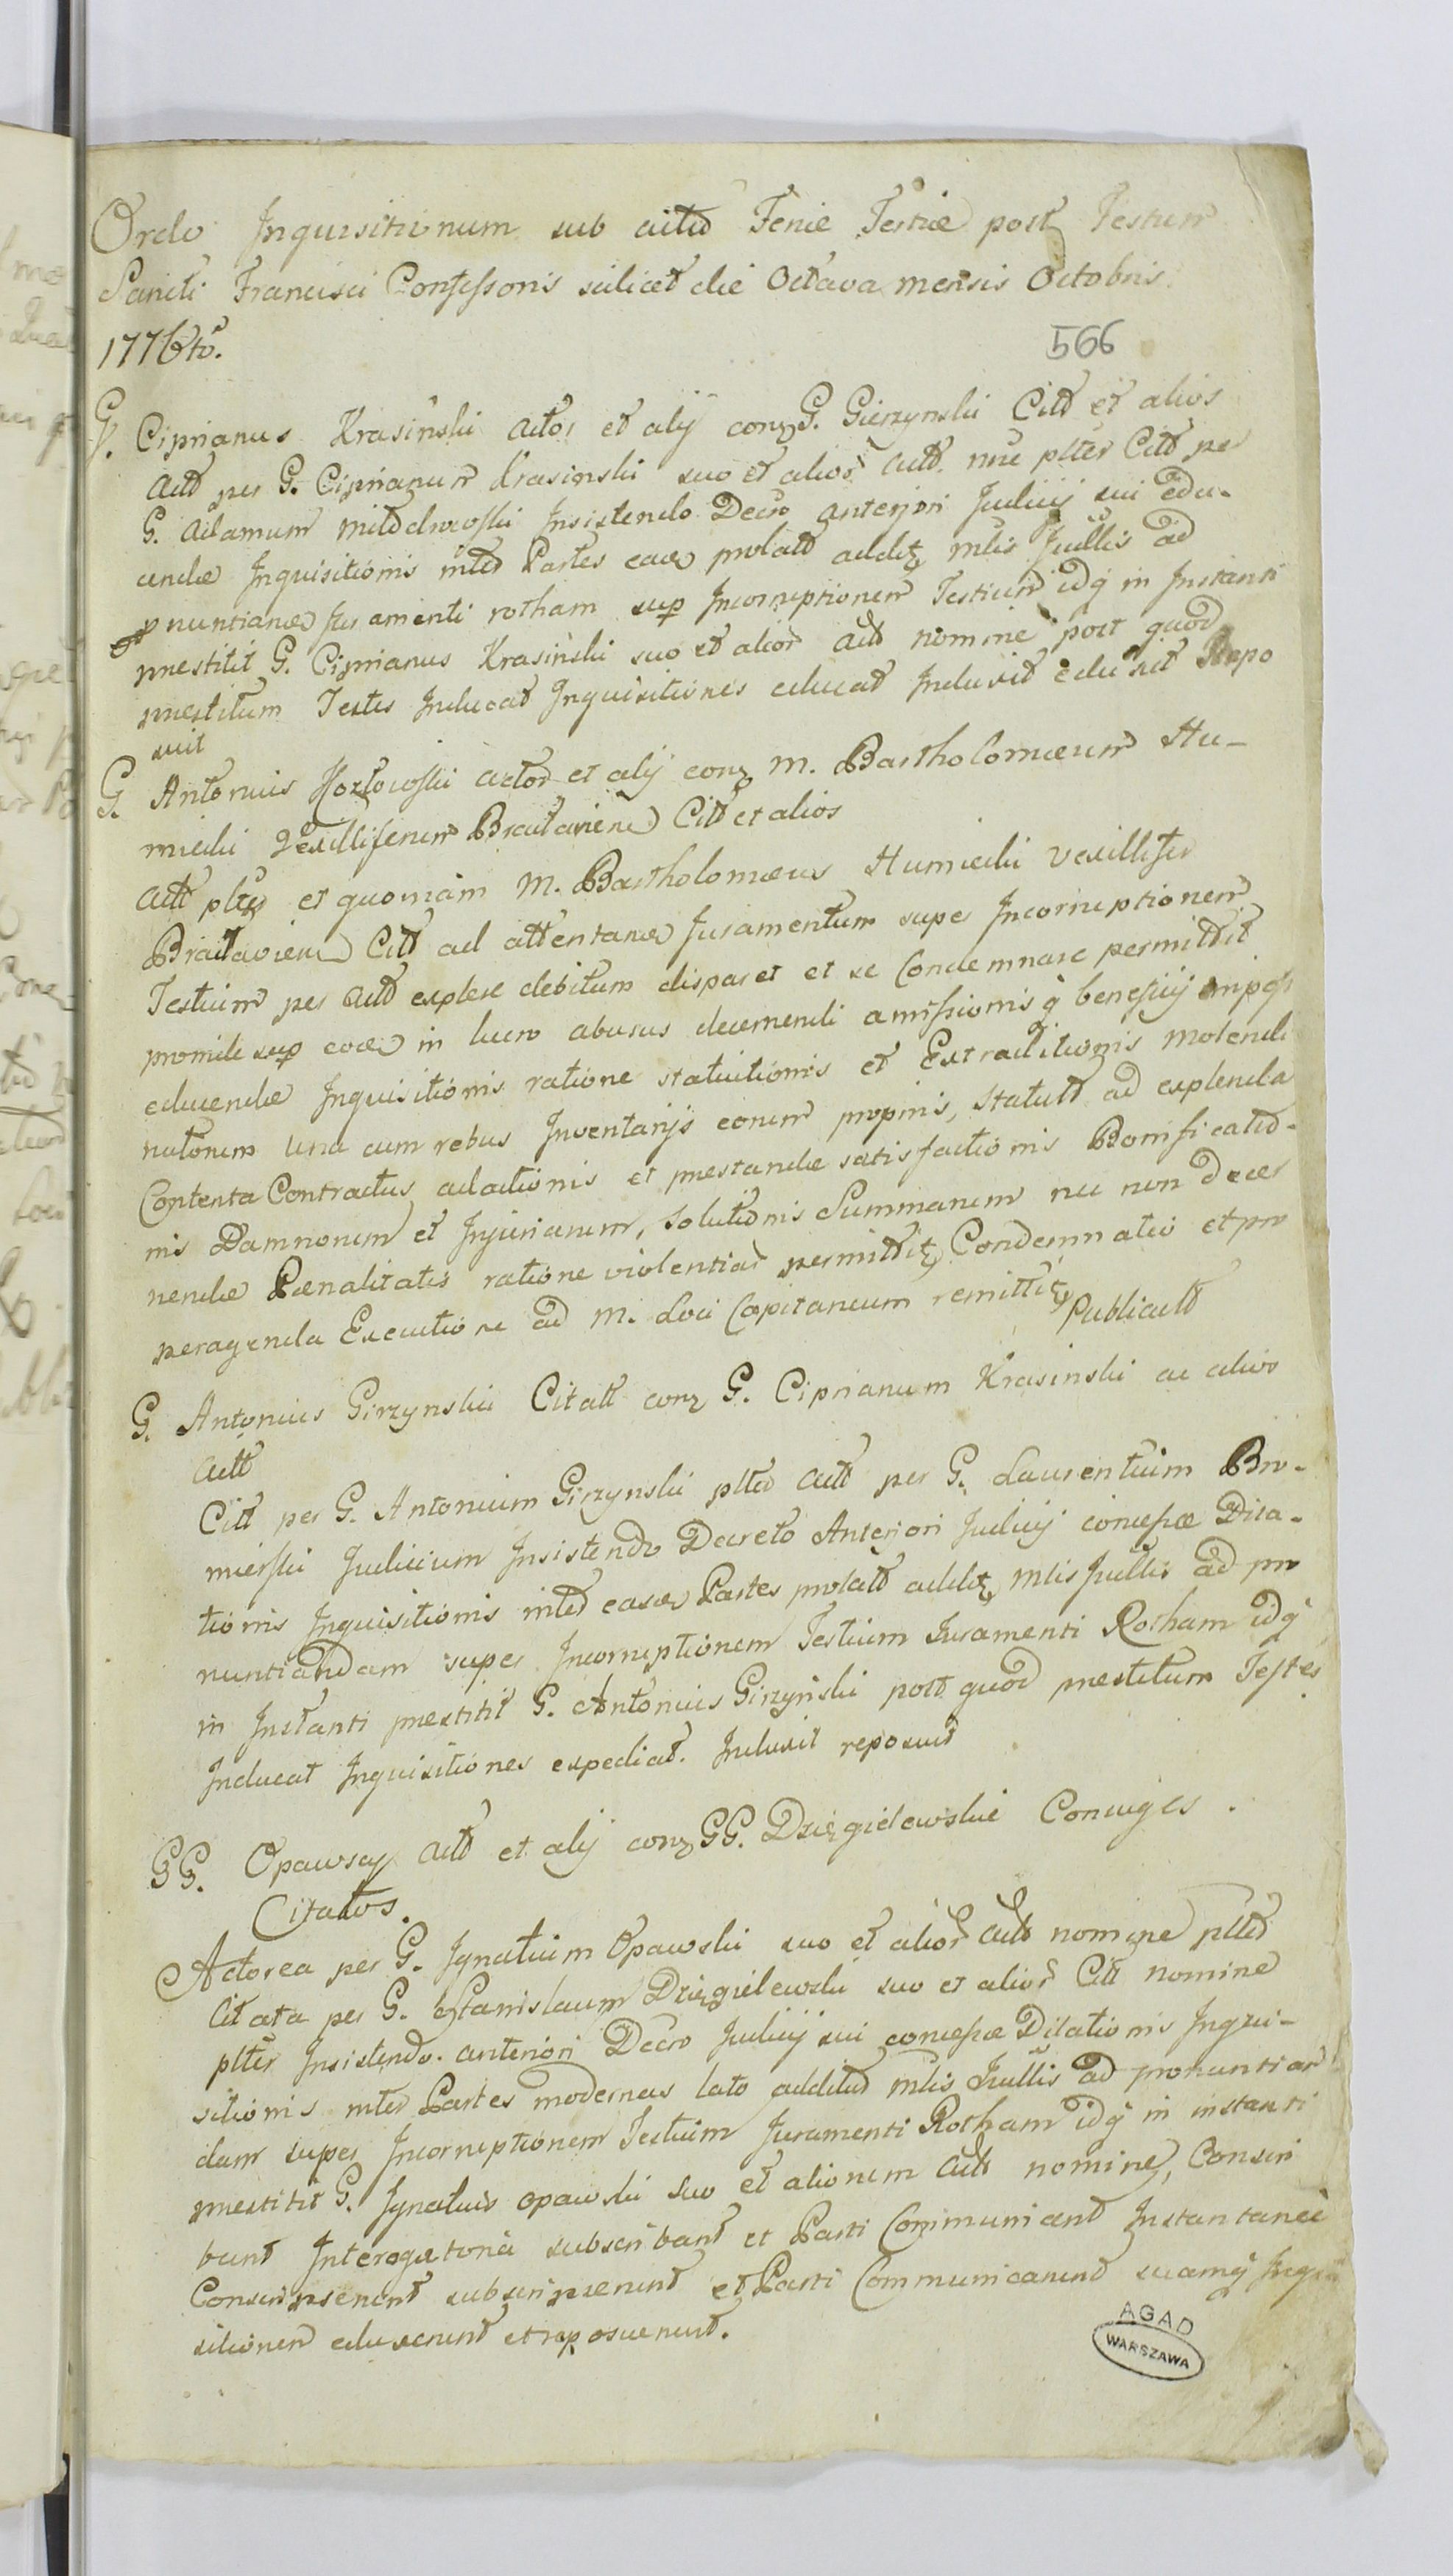 Ordo Inquisitionum sub actu Feriæ Tertiæ post Festum
Sancti Francisci Confessoris scilicet die Octava mensis Octobris
1776to.
566
G. Ciprianus Krasinski actor et alij conz G. Girzynski Citt et alios
Actt per G. Ciprianum Krasinski suo et alior Actt nne plter Citt per
G. Adamum Insistendo Decro anterjori Judicij sui edu-
cendæ Inquisitionis inter Partes easd prolatt additz mlis Jullis ad
pnuntiand Juramenti rotham sup Incorruptionem Testium idq in Instanti
prestitit G. Ciprianus Krasinski suo et alior Actt nomine post quod
prestitum Testes Inducat Inquisitiones educat Induxit eduxit Repo
suit
G. Antonius Kozłowski actor et alij conz M. Bartholomæum Hu-
miecki Vexilliferum Braclaviens Citt et alios
Actt plter et quoniam M. Bartholomæus Humiecki Vexillifer
Braclaviens Citt ad attentand Juramentum super Incorruptionem
Testium per Actt explere debitum disparet et se Condemnare permittit
proinde sup eod in lucro abusus decernendi amissionis q beneficij
educendæ Inquisitionis ratione statuitionis et Extraditionis Molendi
natorum una cum rebus Inventarijs eorum proprijs, Statutt ad explenda
Contenta Contractus adactionis et prestandæ satisfactionis Bonificatio-
nis Damnorum et Injuriarum, Solutionis Summarum nec non decer
nendæ Pænalitatis ratione violentiar permittitz Condemnatio et pro
peragenda Executione ad M. Loci Capitaneum remittitz Publicatt
G. Antonius Girzynski Citatt conz G. Ciprianum Krasinski ac alios
Actt
Citt per G. Antonium Girzynski plter Actt per G. Laurentium Bro-
mierski Judicium Insistendo Decreto Anterjori Judicij concessæ Dila-
tionis Inquisitionis inter easd Partes prolatt additz mlis Jullis ad pro
nuntiandam super Incorruptionem Testium Juramenti Rotham idq
in Instanti prestitit G. Antonius Girzynski post quod prestitum Testes
Inducat Inquisitiones expediat. Induxit reposuit
GG. Opawscy Actt et alij conz GG. Dzięgielewskie Conuiges.
Citatos.
Actorea per G. Ignatium Opawski suo et alior Actt nomine plter
Citata per G. Stanislaum Dzięgielewski suo et alior Citt nomine
plter Insistendo anteriori Decro Judicij sui concessæ Dilationis Inqui-
sitionis inter Partes modernas lato additis mlis Jullis ad pronuntian
dam super Incorruptionem Testium Juramenti Rotham idq in instanti
prestitit G. Ignatius Opawski suo et aliorum Actt nomine, Conscri
bant Interogatoria subscribant et Parti Communicant Instantanee
Conscripserunt subscripserunt et Parti Communicarunt suamq Inqui
sitionem eduxerunt et reposuerunt.
AGAD
WARSZAWA